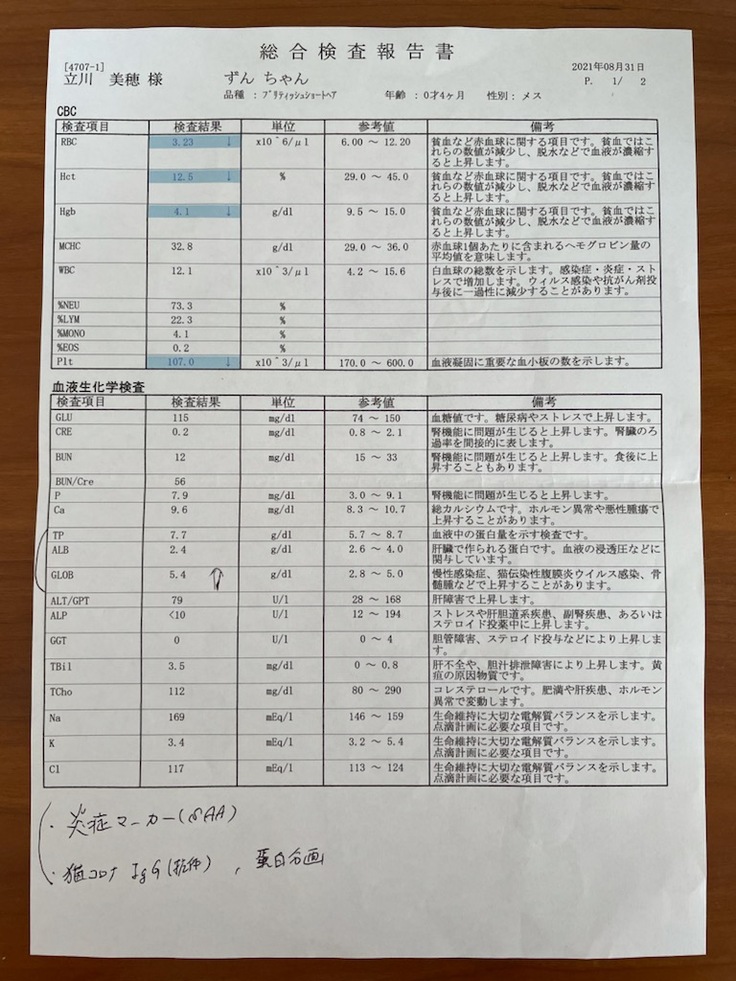 総合検査報告書
[4707-1]
2021年08月31日
立川 美穂 様
ずん ちゃん
P. 1/ 2
品種 : ﾌﾞﾘﾃｨｯｼｭｼｮｰﾄﾍｱ 年齢 : 0才4ヶ月 性別 : メス
CBC
検査項目 検査結果 単位 参考値 備考
RBC 3.23 ↓ x10^6/μl 6.00 ～ 12.20 貧血など赤血球に関する項目です。貧血ではこ
れらの数値が減少し、脱水などで血液が濃縮す
ると上昇します。
Hct 12.5 ↓ % 29.0 ～ 45.0 貧血など赤血球に関する項目です。貧血ではこ
れらの数値が減少し、脱水などで血液が濃縮す
ると上昇します。
Hgb 4.1 ↓ g/dl 9.5 ～ 15.0 貧血など赤血球に関する項目です。貧血ではこ
れらの数値が減少し、脱水などで血液が濃縮す
ると上昇します。
MCHC 32.8 g/dl 29.0 ～ 36.0 赤血球1個あたりに含まれるヘモグロビン量の
平均値を意味します。
WBC 12.1 x10^3/μl 4.2 ～ 15.6 白血球の総数を示します。感染症・炎症・スト
レスで増加します。ウィルス感染や抗がん剤投
与後に一過性に減少することがあります。
%NEU 73.3 %
%LYM 22.3 %
%MONO 4.1 %
%EOS 0.2 %
Plt 107.0 ↓ x10^3/μl 170.0 ～ 600.0 血液凝固に重要な血小板の数を示します。
血液生化学検査
検査項目 検査結果 単位 参考値 備考
GLU 115 mg/dl 74 ～ 150 血糖値です。糖尿病やストレスで上昇します。
CRE 0.2 mg/dl 0.8 ～ 2.1 腎機能に問題が生じると上昇します。腎臓のろ
過率を間接的に表します。
BUN 12 mg/dl 15 ～ 33 腎機能に問題が生じると上昇します。食後に上
昇することもあります。
BUN/Cre 56
P 7.9 mg/dl 3.0 ～ 9.1 腎機能に問題が生じると上昇します。
Ca 9.6 mg/dl 8.3 ～ 10.7 総カルシウムです。ホルモン異常や悪性腫瘍で
上昇することがあります。
TP 7.7 g/dl 5.7 ～ 8.7 血液中の蛋白量を示す検査です。
ALB 2.4 g/dl 2.6 ～ 4.0 肝臓で作られる蛋白です。血液の浸透圧などに
関与しています。
GLOB 5.4 ⇑ g/dl 2.8 ～ 5.0 慢性感染症、猫伝染性腹膜炎ウイルス感染、骨
髄腫などで上昇することがあります。
ALT/GPT 79 U/l 28 ～ 168 肝障害で上昇します。
ALP <10 U/l 12 ～ 194 ストレスや肝胆道系疾患、副腎疾患、あるいは
ステロイド投薬中に上昇します。
GGT 0 U/l 0 ～ 4 胆管障害、ステロイド投与などにより上昇しま
す。
TBil 3.5 mg/dl 0 ～ 0.8 肝不全や、胆汁排泄障害により上昇します。黄
疸の原因物質です。
TCho 112 mg/dl 80 ～ 290 コレステロールです。肥満や肝疾患、ホルモン
異常で変動します。
Na 169 mEq/l 146 ～ 159 生命維持に大切な電解質バランスを示します。
点滴計画に必要な項目です。
K 3.4 mEq/l 3.2 ～ 5.4 生命維持に大切な電解質バランスを示します。
点滴計画に必要な項目です。
Cl 117 mEq/l 113 ～ 124 生命維持に大切な電解質バランスを示します。
点滴計画に必要な項目です。
・炎症マーカー(SAA)
・猫コロナ IgG(抗体) , 蛋白分画